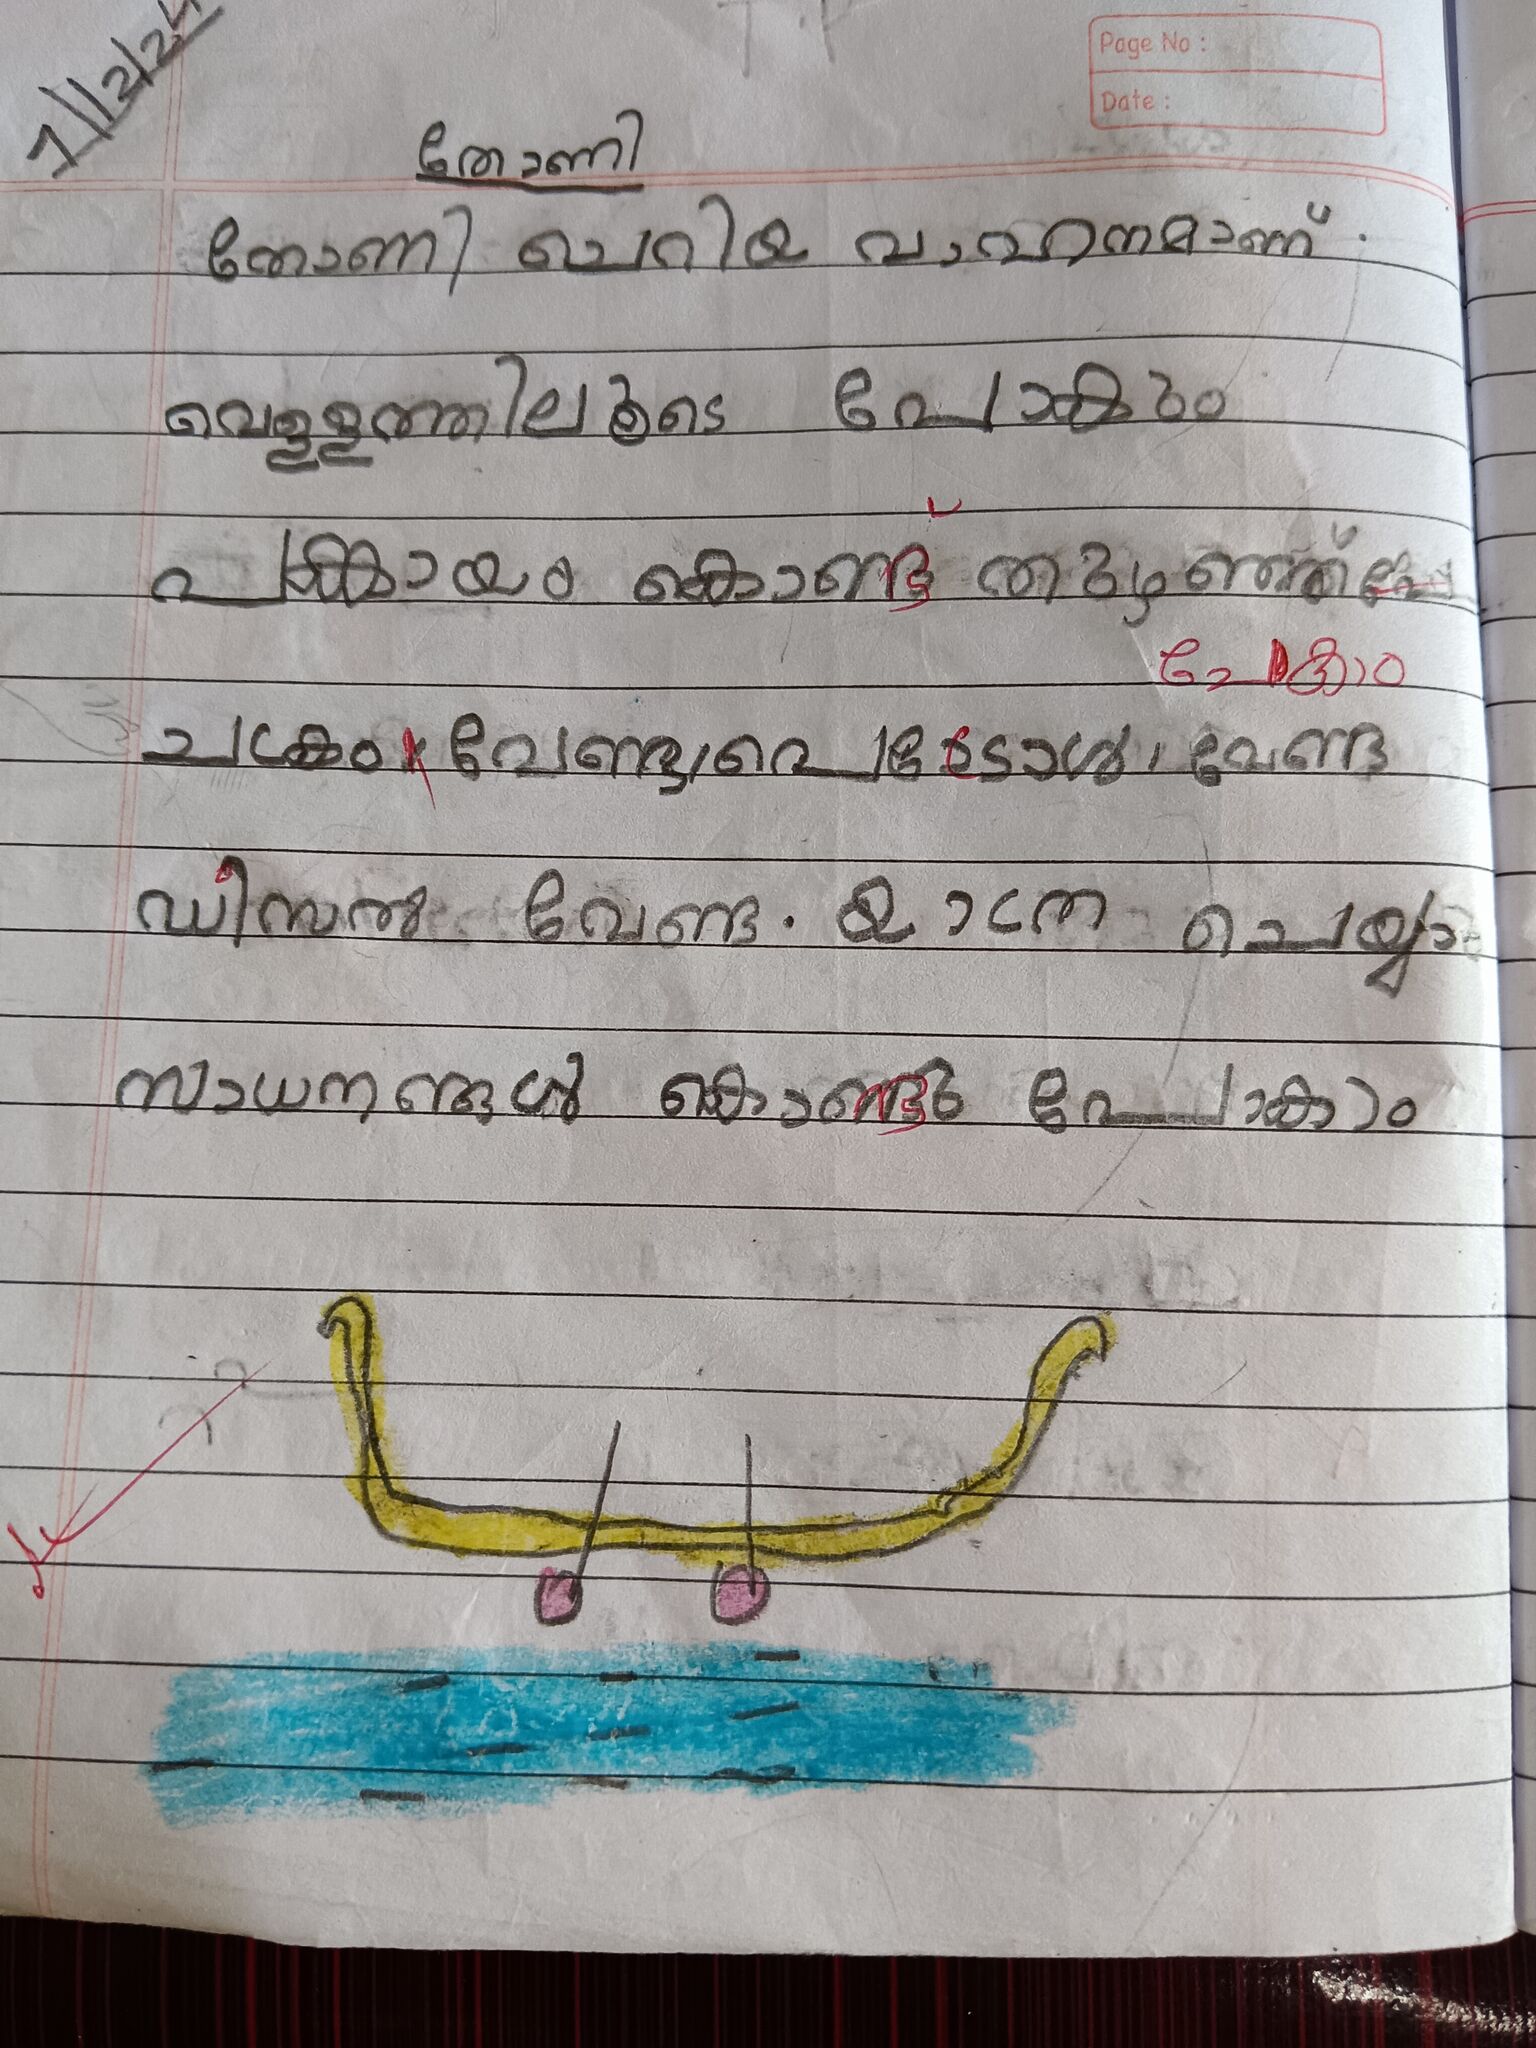 7/12/24
Page No :
Date :
തോണി
തോണി ചെറിയ വാഹനമാണ്.
വെള്ളത്തിലൂടെ പോകും
പങ്കായം കൊണ്ട് തുഴഞ്ഞ്
പോകാം
ചക്രം വേണ്ട, പെട്രോൾ, വേണ്ട
ഡീസൽ വേണ്ട. യാത്ര ചെയ്യാം
സാധനങ്ങൾ കൊണ്ടു പോകാം